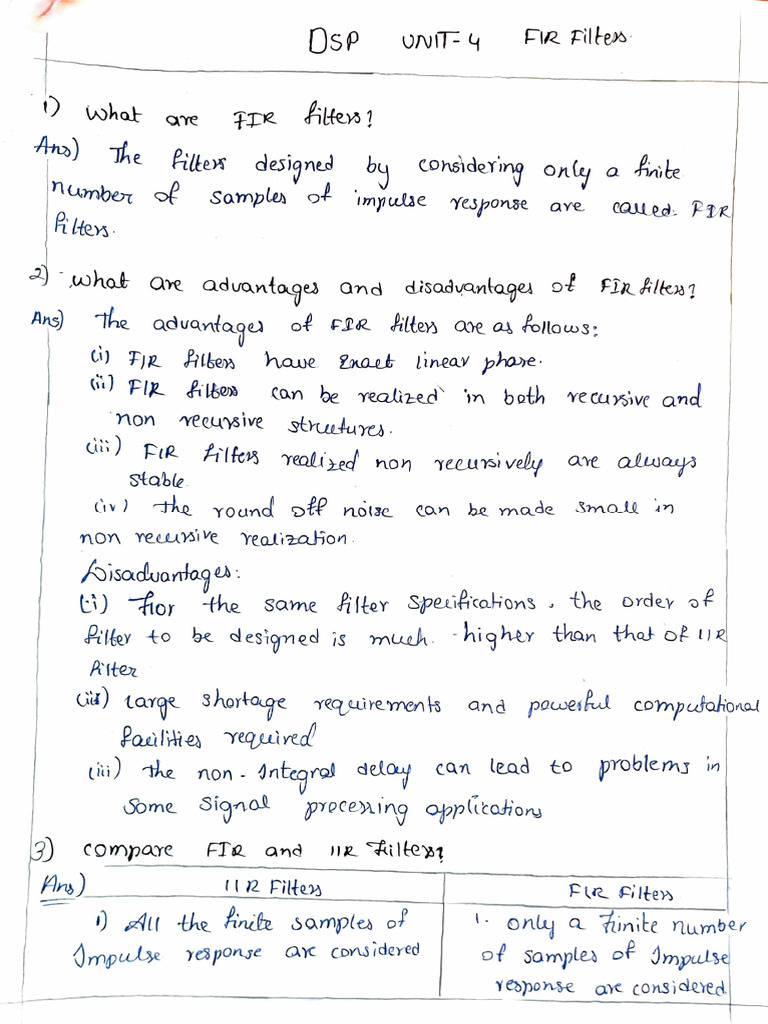 DSP UNIT-4 FIR Filters.
1) What are FIR filters?
Ans) The filters designed by considering only a finite
number of samples of impulse response are called. FIR
filters.
2) What are advantages and disadvantages of FIR filters?
Ans) The advantages of FIR filters are as follows:
(i) FIR filters have Exact linear phase.
(ii) FIR filters can be realized in both recursive and
non recursive structures.
(iii) FIR filters realized non recursively are always
stable.
(iv) The round off noise can be made small in
non recursive realization.
Disadvantages:
(i) For the same filter specifications, the order of
filter to be designed is much higher than that of IIR
filter
(ii) Large shortage requirements and powerful computational
facilities required
(iii) The non-Integral delay can lead to problems in
some signal processing applications
3) compare FIR and IIR Filters?
Ans) IIR Filters FIR Filters
1) All the finite samples of 1. only a finite number
Impulse response are considered of samples of Impulse
response are considered.